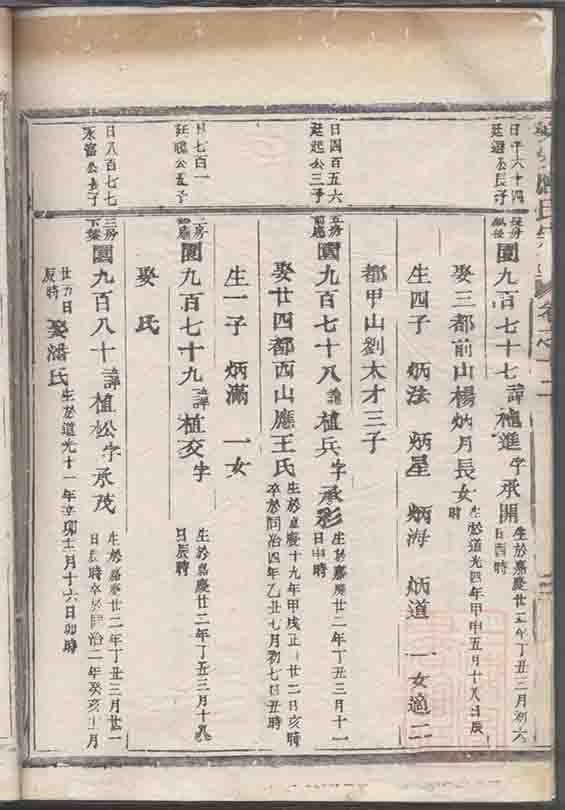 應氏宗
卷之
三
日字六十四
廷選公長子
長房
園九百七十七諱植進字承開
生於嘉慶廿二年丁丑三月初六
日酉時
娶三都前山楊炳月長女
生於道光四年甲申五月廿八日辰
時
生四子 炳法 炳星 炳海 炳道 一女適二
都甲山劉太才三子
日四百五六
廷起公三子
五房
園九百七十八諱植兵字承彩
生於嘉慶廿二年丁丑三月十一
日申時
娶廿四都西山應王氏
生於嘉慶十九年甲戌正月廿二日亥時
卒於同治四年乙丑七月初七日丑時
生一子 炳滿 一女
日七百一
廷聰公五子
房
園九百七十九諱植交字
生於嘉慶廿二年丁丑三月十九
日辰時
娶 氏
日八百七七
永富公長子
三房
下葉
園九百八十諱植松字承茂
生於嘉慶廿二年丁丑三月廿一
日辰時卒於同治二年癸亥十月
廿九日
辰時
娶潘氏
生於道光十一年辛卯十二月十六日卯時